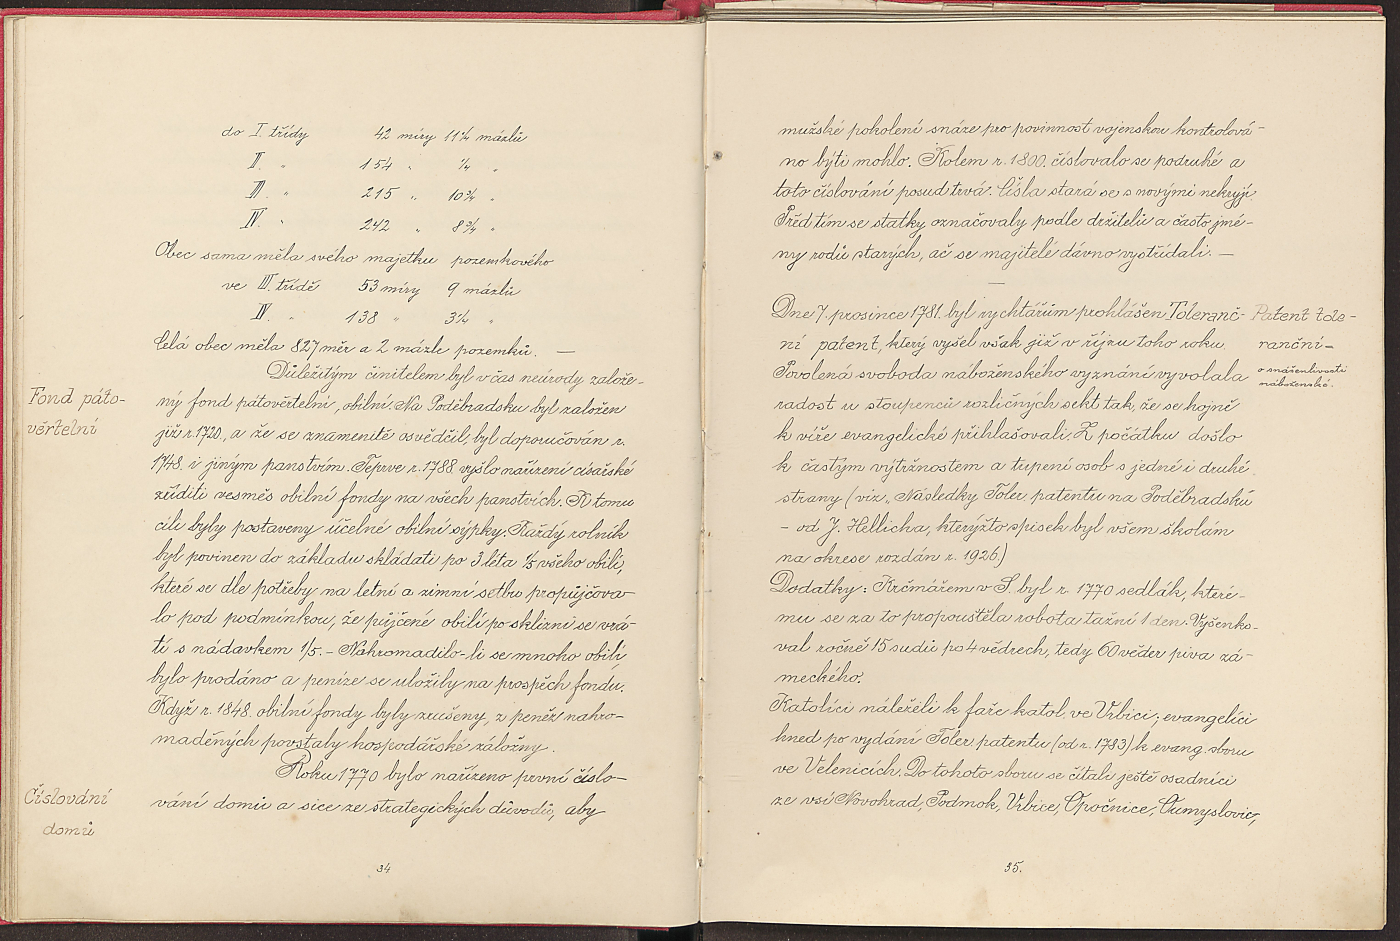 do I. třídy 42 míry 11 2/4 mázlů
II. " 154 " 1/4 "
III. " 215 " 10 3/4 "
IV. " 242 " 8 3/4 "
Obec sama měla svého majetku pozemkového
ve III. třídě 53 míry 9 mázlů
IV. " 138 " 3 1/4 "
Celá obec měla 827 měr a 2 mázle pozemků. —
Důležitým činitelem byl v čas neúrody založe-
Fond páto-
věrtelní
ný fond pátověrtelní, obilní. Na Poděbradsku byl založen
již r. 1720., a že se znamenitě osvědčil, byl doporučován r.
1748. i jiným panstvím. Teprve r. 1788 vyšlo nařízení císařské
zříditi vesměs obilní fondy na všech panstvích. K tomu
cíli byly postaveny účelné obilní sýpky. Každý rolník
byl povinen do základu skládati po 3 léta 1/5 všeho obilí,
které se dle potřeby na letní a zimní setbu propůjčova-
lo pod podmínkou, že půjčené obilí po sklizni se vrá-
tí s nádavkem 1/5. – Nahromadilo-li se mnoho obilí,
bylo prodáno a peníze se uložily na prospěch fondu.
Když r. 1848. obilní fondy byly zrušeny, z peněz nahro-
maděných povstaly hospodářské záložny.
Roku 1770 bylo nařízeno první číslo-
Číslování
domů
vání domů a sice ze strategických důvodů, aby
34
mužské pokolení snáze pro povinnost vojenskou kontrolová-
no býti mohlo. Kolem r. 1800. číslovalo se podruhé a
toto číslování posud trvá. Čísla stará se s novými nekryjí.
Před tím se statky označovaly podle držitelů a často jmé-
ny rodů starých, ač se majitelé dávno vystřídali. —
—
Dne 7. prosince 1781. byl rychtářům prohlášen Toleranč-
Patent tole-
ranční –
o snášenlivosti
náboženské.
ní patent, který vyšel však již v říjnu toho roku.
Povolená svoboda náboženského vyznání vyvolala
radost u stoupenců rozličných sekt tak, že se hojně
k víře evangelické přihlašovali. Z počátku došlo
k častým výtržnostem a trpení osob s jedné i druhé
strany (viz „ Následky Toler. patentu na Poděbradsku
– od J. Hellicha, kterýžto spisek byl všem školám
na okrese rozdán r. 1926)
Dodatky: Krčmářem v S. byl r. 1770 sedlák, které-
mu se za to propouštěla robota tažní 1 den. Vyšenko-
val ročně 15 sudů po 4 vědrech, tedy 60 věder piva zá-
meckého.
Katolíci náleželi k faře katol. ve Vrbici; evangelíci
hned po vydání Toler. patentu (od r. 1783) k evang. sboru
ve Velenicích. Do tohoto sboru se čítali ještě osadníci
ze vsí Novohrad, Podmok, Vrbice, Opočnice, Oumyslovic,
35.